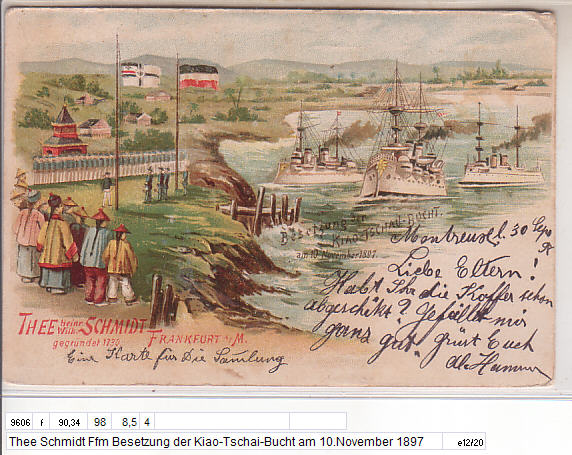 Besetzung der
KIAO-TSCHAI-BUCHT.
am 10. November 1897.
30 Sep
Liebe Eltern!
Habt Ihr die Koffer schon
abgeschikt? Gefällt mir
ganz gut. grüst Euch
THEE Heinr. Wilh. SCHMIDT
gegründet 1790. FRANKFURT a/M.
Eine Karte für Die Samlung
9606 f 90,34 98 8,5 4
Thee Schmidt Ffm Besetzung der Kiao-Tschai-Bucht am 10.November 1897 e12/20